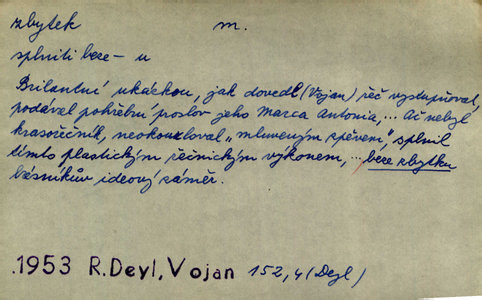 zbytek m.
splniti beze – u
Brilantní ukázkou, jak dovedl (Vojan) řeč vystupňovat,
podával pohřební proslov jeho Marca Antonia,... Ač nebyl
krasořečník, neokouzloval „mluveným zpěvem“, splnil
tímto plastickým řečnickým výkonem, ... beze zbytku
básníkův ideový záměr.
.1953 R. Deyl, Vojan 152, 4 (Deyl)